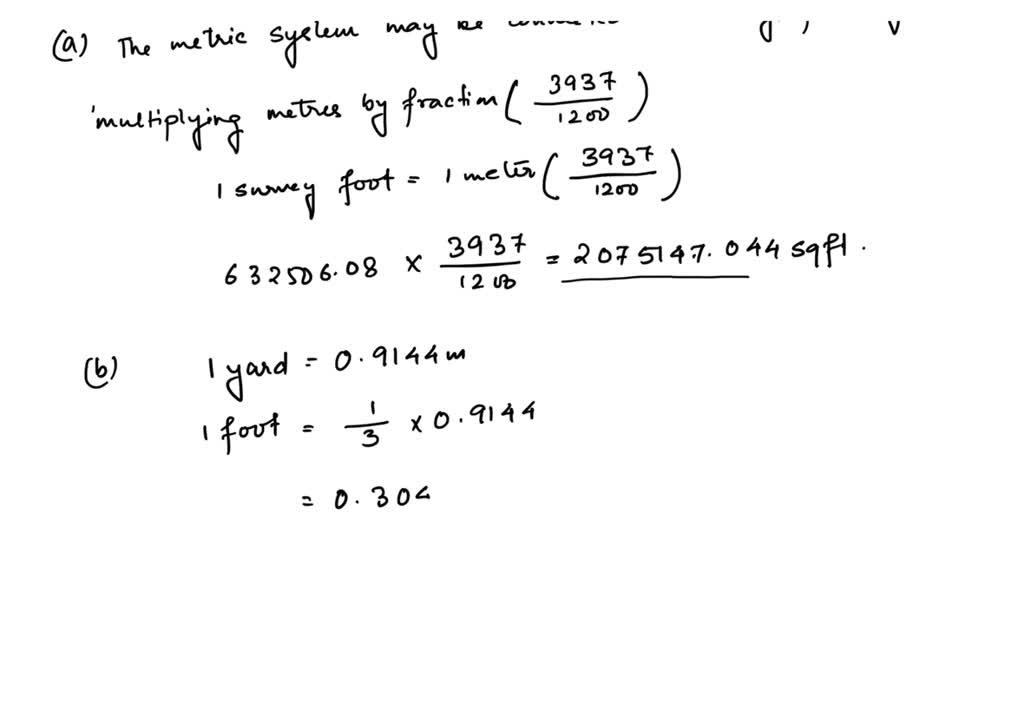 (a) The metric system may be
multiplying metres by fraction (3937/1200)
1 survey foot = 1 meter (3937/1200)
632506.08 × 3937/1200 = 2075147.044 sqft.
(b) 1 yard = 0.9144 m
1 foot = 1/3 × 0.9144
= 0.304